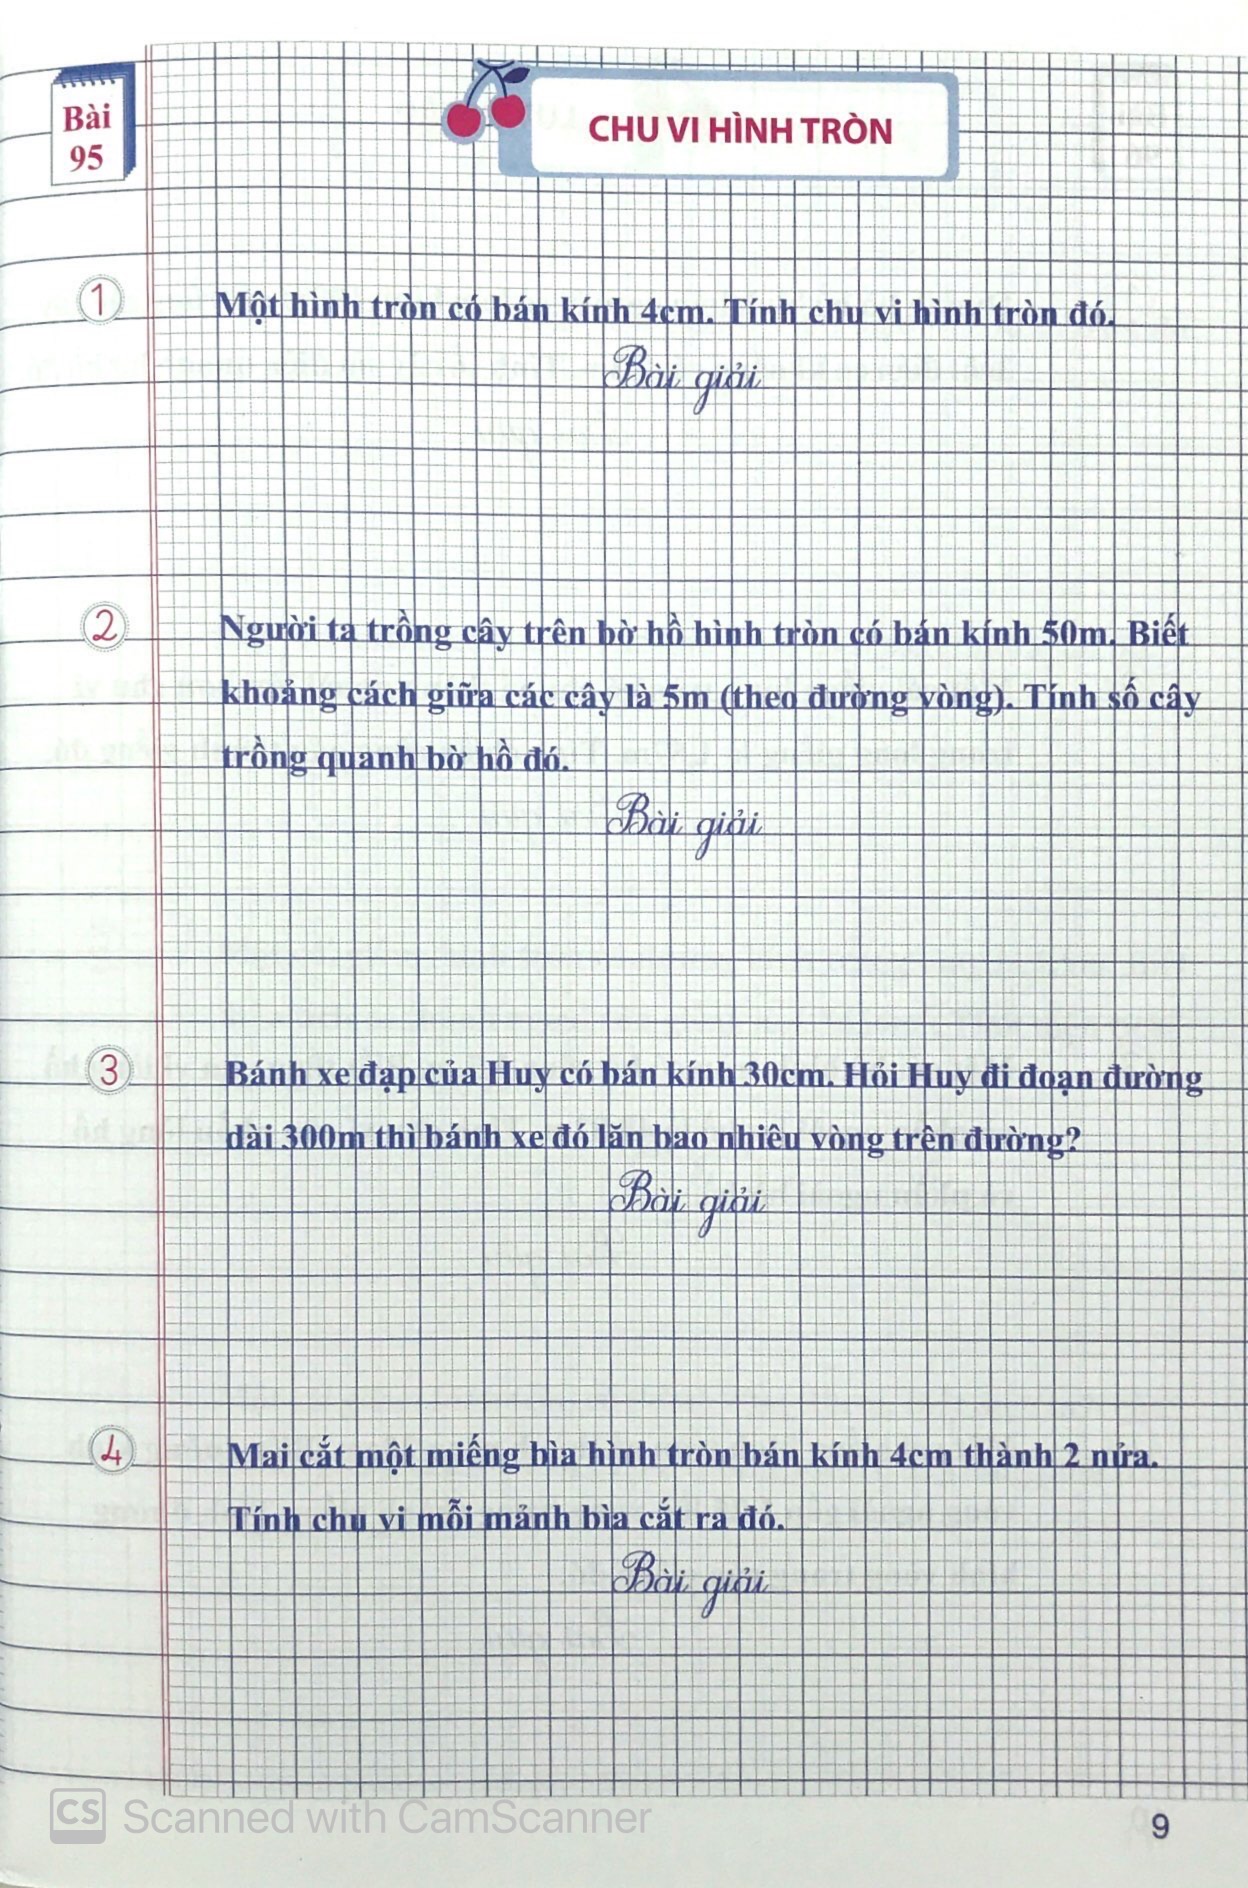 Bài
95
CHU VI HÌNH TRÒN
1 Một hình tròn có bán kính 4cm. Tính chu vi hình tròn đó.
Bài giải
2 Người ta trồng cây trên bờ hồ hình tròn có bán kính 50m. Biết
khoảng cách giữa các cây là 5m (theo đường vòng). Tính số cây
trồng quanh bờ hồ đó.
Bài giải
3 Bánh xe đạp của Huy có bán kính 30cm. Hỏi Huy đi đoạn đường
dài 300m thì bánh xe đó lăn bao nhiêu vòng trên đường?
Bài giải
4 Mai cắt một miếng bìa hình tròn bán kính 4cm thành 2 nửa.
Tính chu vi mỗi mảnh bìa cắt ra đó.
Bài giải
CS Scanned with CamScanner
9